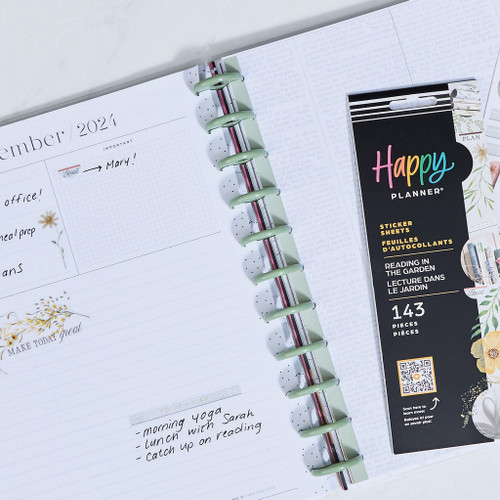 ember / 2024
IMPORTANT
→ Mary!
office!
meal prep
ans
MAKE TODAY great
- morning yoga
- lunch with Sarah
- catch up on reading
PLAN
Happy
PLANNER®
STICKER
SHEETS
FEUILLES
D'AUTOCOLLANTS
READING IN
THE GARDEN
LECTURE DANS
LE JARDIN
143
PIECES
PIÈCES
Scan here to
learn more!